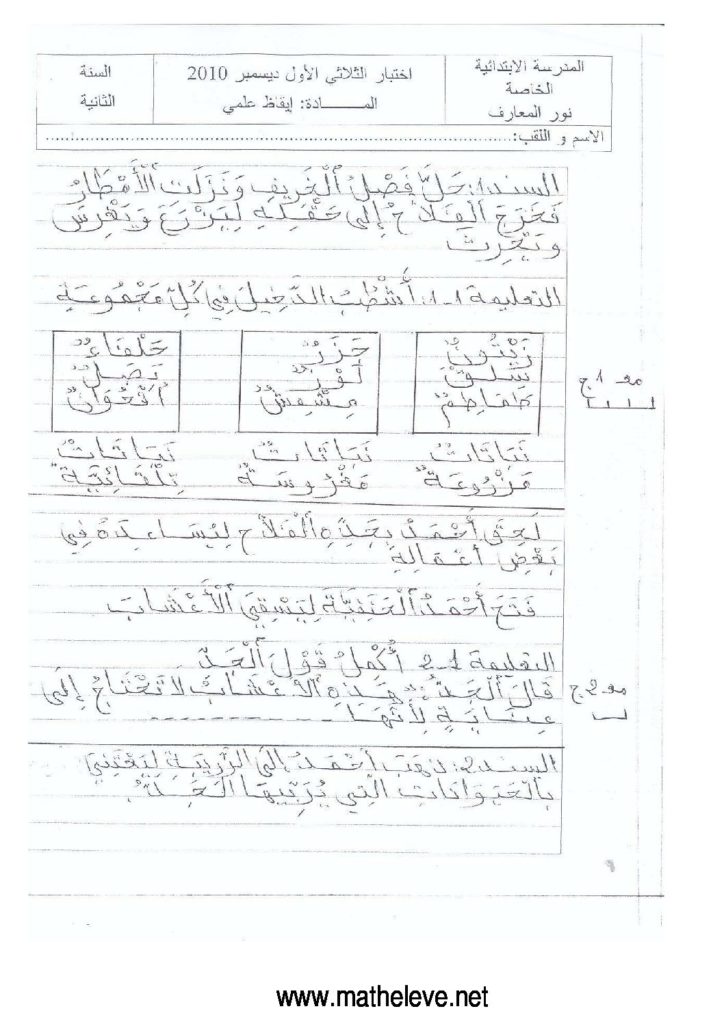 المدرسة الابتدائية
الخاصة
نور المعارف
اختبار الثلاثي الأول ديسمبر 2010
المـــــادة: إيقاظ علمي
السنة
الثانية
الاسم و اللقب:
السند1: حَلَّ فَصْلُ ٱلْخَرِيفِ وَنَزَلَتِ ٱلْأَمْطَارُ
فَخَرَجَ ٱلْفَلَّاحُ إِلَى حَقْلِهِ لِيَزْرَعَ وَيَغْرِسَ
وَيَحْرِثَ
التعليمة 1-1: أَشْطُبُ الدَّخِيلَ فِي كُلِّ مَجْمُوعَةٍ
زَيْتُونٌ
سِلْقٌ
طَمَاطِمُ
جَزَرٌ
لَوْزٌ
مِشْمِشٌ
حَلْفَاءٌ
بَصَلٌ
أُقْحُوَانٌ
مع 1.ج
نَبَاتَاتٌ
مَزْرُوعَةٌ
نَبَاتَاتٌ
مَغْرُوسَةٌ
نَبَاتَاتٌ
تِلْقَائِيَّةٌ
لَحِقَ أَحْمَدُ بِجَدِّهِ ٱلْفَلَّاحِ لِيُسَاعِدَهُ فِي
بَعْضِ أَعْمَالِهِ
فَتَحَ أَحْمَدُ ٱلْحَنَفِيَّةَ لِيَسْقِيَ ٱلْأَعْشَابَ
التعليمة 1-2 أُكْمِلُ قَوْلَ ٱلْجَدِّ
قَالَ ٱلْجَدُّ: "هَذِهِ ٱلْأَعْشَابُ لَا تَحْتَاجُ إِلَى
عِنَايَةٍ لِأَنَّهَا
مع 2.ج
السند2: ذَهَبَ أَحْمَدُ إِلَى الزَّرِيبَةِ لِيَعْتَنِيَ
بِالحَيَوَانَاتِ الَّتِي يُرَبِّيهَا الْجَدُّ
1
www.matheleve.net